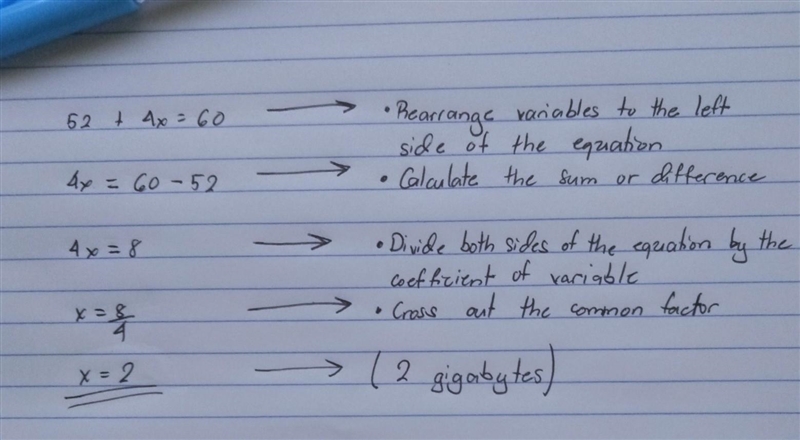 52 + 4x = 60 → • Rearrange variables to the left
side of the equation
4x = 60 - 52 → • Calculate the sum or difference
4x = 8 → • Divide both sides of the equation by the
coefficient of variable
x = 8/4 → • Cross out the common factor
x = 2 → (2 gigabytes)